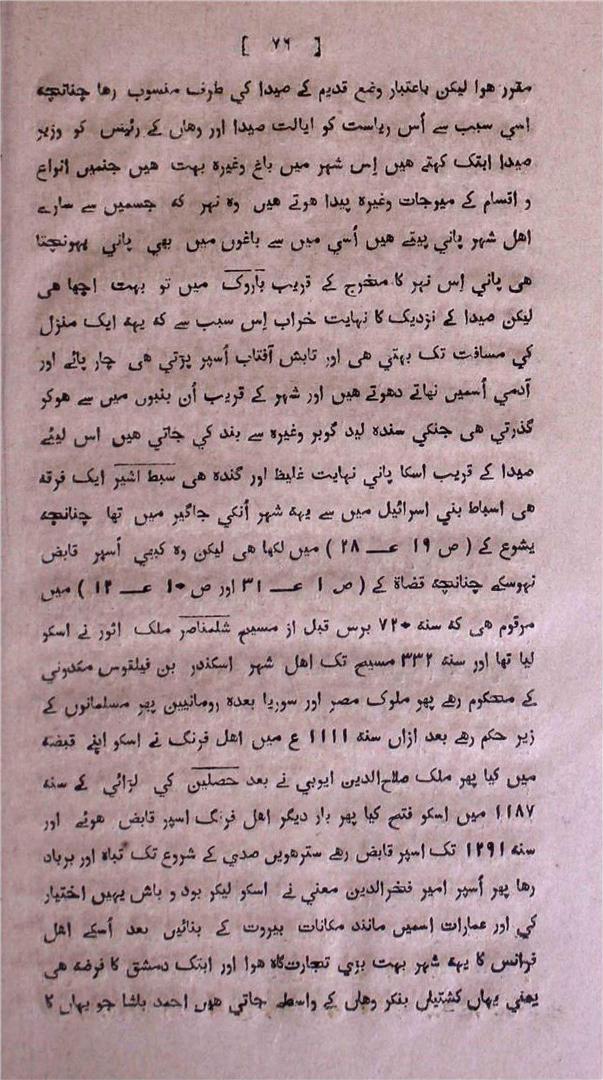 [ ۷۶ ]
مقرر هوا لیکن باعتبار وضع قدیم کے صیدا کي طرف منسوب رها چنانچه
اسي سبب سے اُس ریاست کو ایالت صیدا اور وهاں کے رئیس کو وزیر
صیدا ابتک کہتے هیں اِس شہر میں باغ وغیرہ بہت هیں جنمیں انواع
و اقسام کے میوجات وغیرہ پیدا هوتے هیں وہ نہر که جسمیں سے سارے
اهل شہر پاني پیتے هیں اُسي میں سے باغوں میں بھي پاني پہونچتا
هی پاني اِس نہر کا مخرج کے قریب باروک میں تو بہت اچھا هی
لیکن صیدا کے نزدیک کا نہایت خراب اِس سبب سے که یہه ایک منزل
کي مسافت تک بہتي هی اور تابش آفتاب اُسپر پڑتي هی چار پائے اور
آدمي اُسمیں نہاتے دھوتے هیں اور شہر کے قریب اُن بنبوں میں سے هوکر
گذرتي هی جنکي سندہ لید گوبر وغیرہ سے بند کي جاتي هیں اس لیئے
صیدا کے قریب اسکا پاني نہایت غلیظ اور گندہ هی سبط اشیر ایک فرقه
هی اسباط بني اسرائیل میں سے یہه شہر اُنکي جاگیر میں تھا چنانچه
یشوع کے ( ص ۱۹ عــ ۲۸ ) میں لکھا هی لیکن وہ کبھي اُسپر قابض
نہوسکے چنانچه قضاة کے ( ص ۱ عــ ۳۱ اور ص ۱۰ عــ ۱۲ ) میں
مرقوم هی که سنه ۷۲۰ برس قبل از مسیح شلمناصر ملک اثور نے اسکو
لیا تھا اور سنه ۳۳۲ مسیح تک اهل شہر اسکندر بن فیلقوس مکدوني
کے محکوم رهے پھر ملوک مصر اور سوریا بعدہ رومانیین پھر مسلمانوں کے
زیر حکم رهے بعد ازاں سنه ۱۱۱۱ ع میں اهل فرنگ نے اسکو اپنے قبضه
میں کیا پھر ملک صلاح‌الدین ایوبي نے بعد حصلین کي لڑائي کے سنه
۱۱۸۷ میں اسکو فتح کیا پھر بار دیگر اهل فرنگ اسپر قابض هوئے اور
سنه ۱۲۹۱ تک اسپر قابض رهے سترهویں صدي کے شروع تک تباہ اور برباد
رها پھر اُسپر امیر فخرالدین معني نے اسکو لیکر بود و باش یہیں اختیار
کي اور عمارات اسمیں مانند مکانات بیروت کے بنائیں بعد اُسکے اهل
فرانس کا یہه شہر بہت بڑي تجارت‌گاہ هوا اور ابتک دمشق کا فرضه هی
یعني یہاں کشتیاں بنکر وهاں کے واسطے جاتي هیں احمد باشا جو یہاں کا